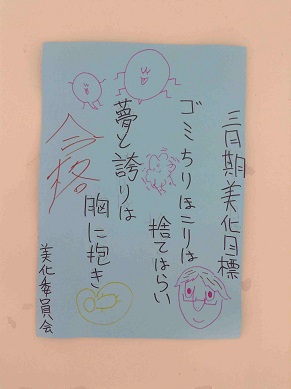 三月期美化目標
ゴミちりほこりは
捨てはらい
夢と誇りは
胸に抱き
合格
美化委員会